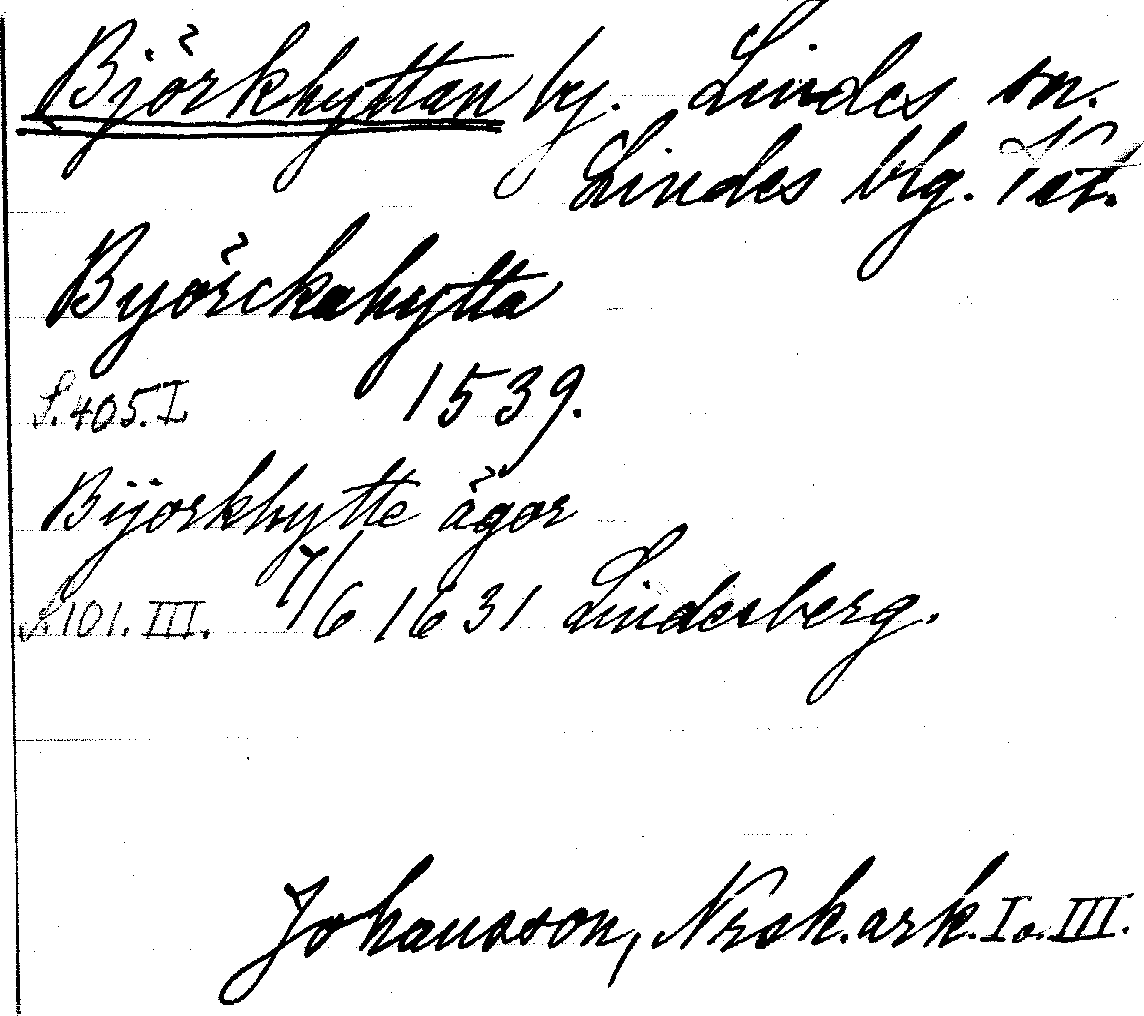 Björkhyttan by. Lindes sn.
Lindes blg. Vät.
Byörckahytta
S. 405. I 1539.
Bijorkhytte ägor
S. 101. III. 7/6 1631 Lindesberg.
Johansson, Nrsk. ark. I o. III.